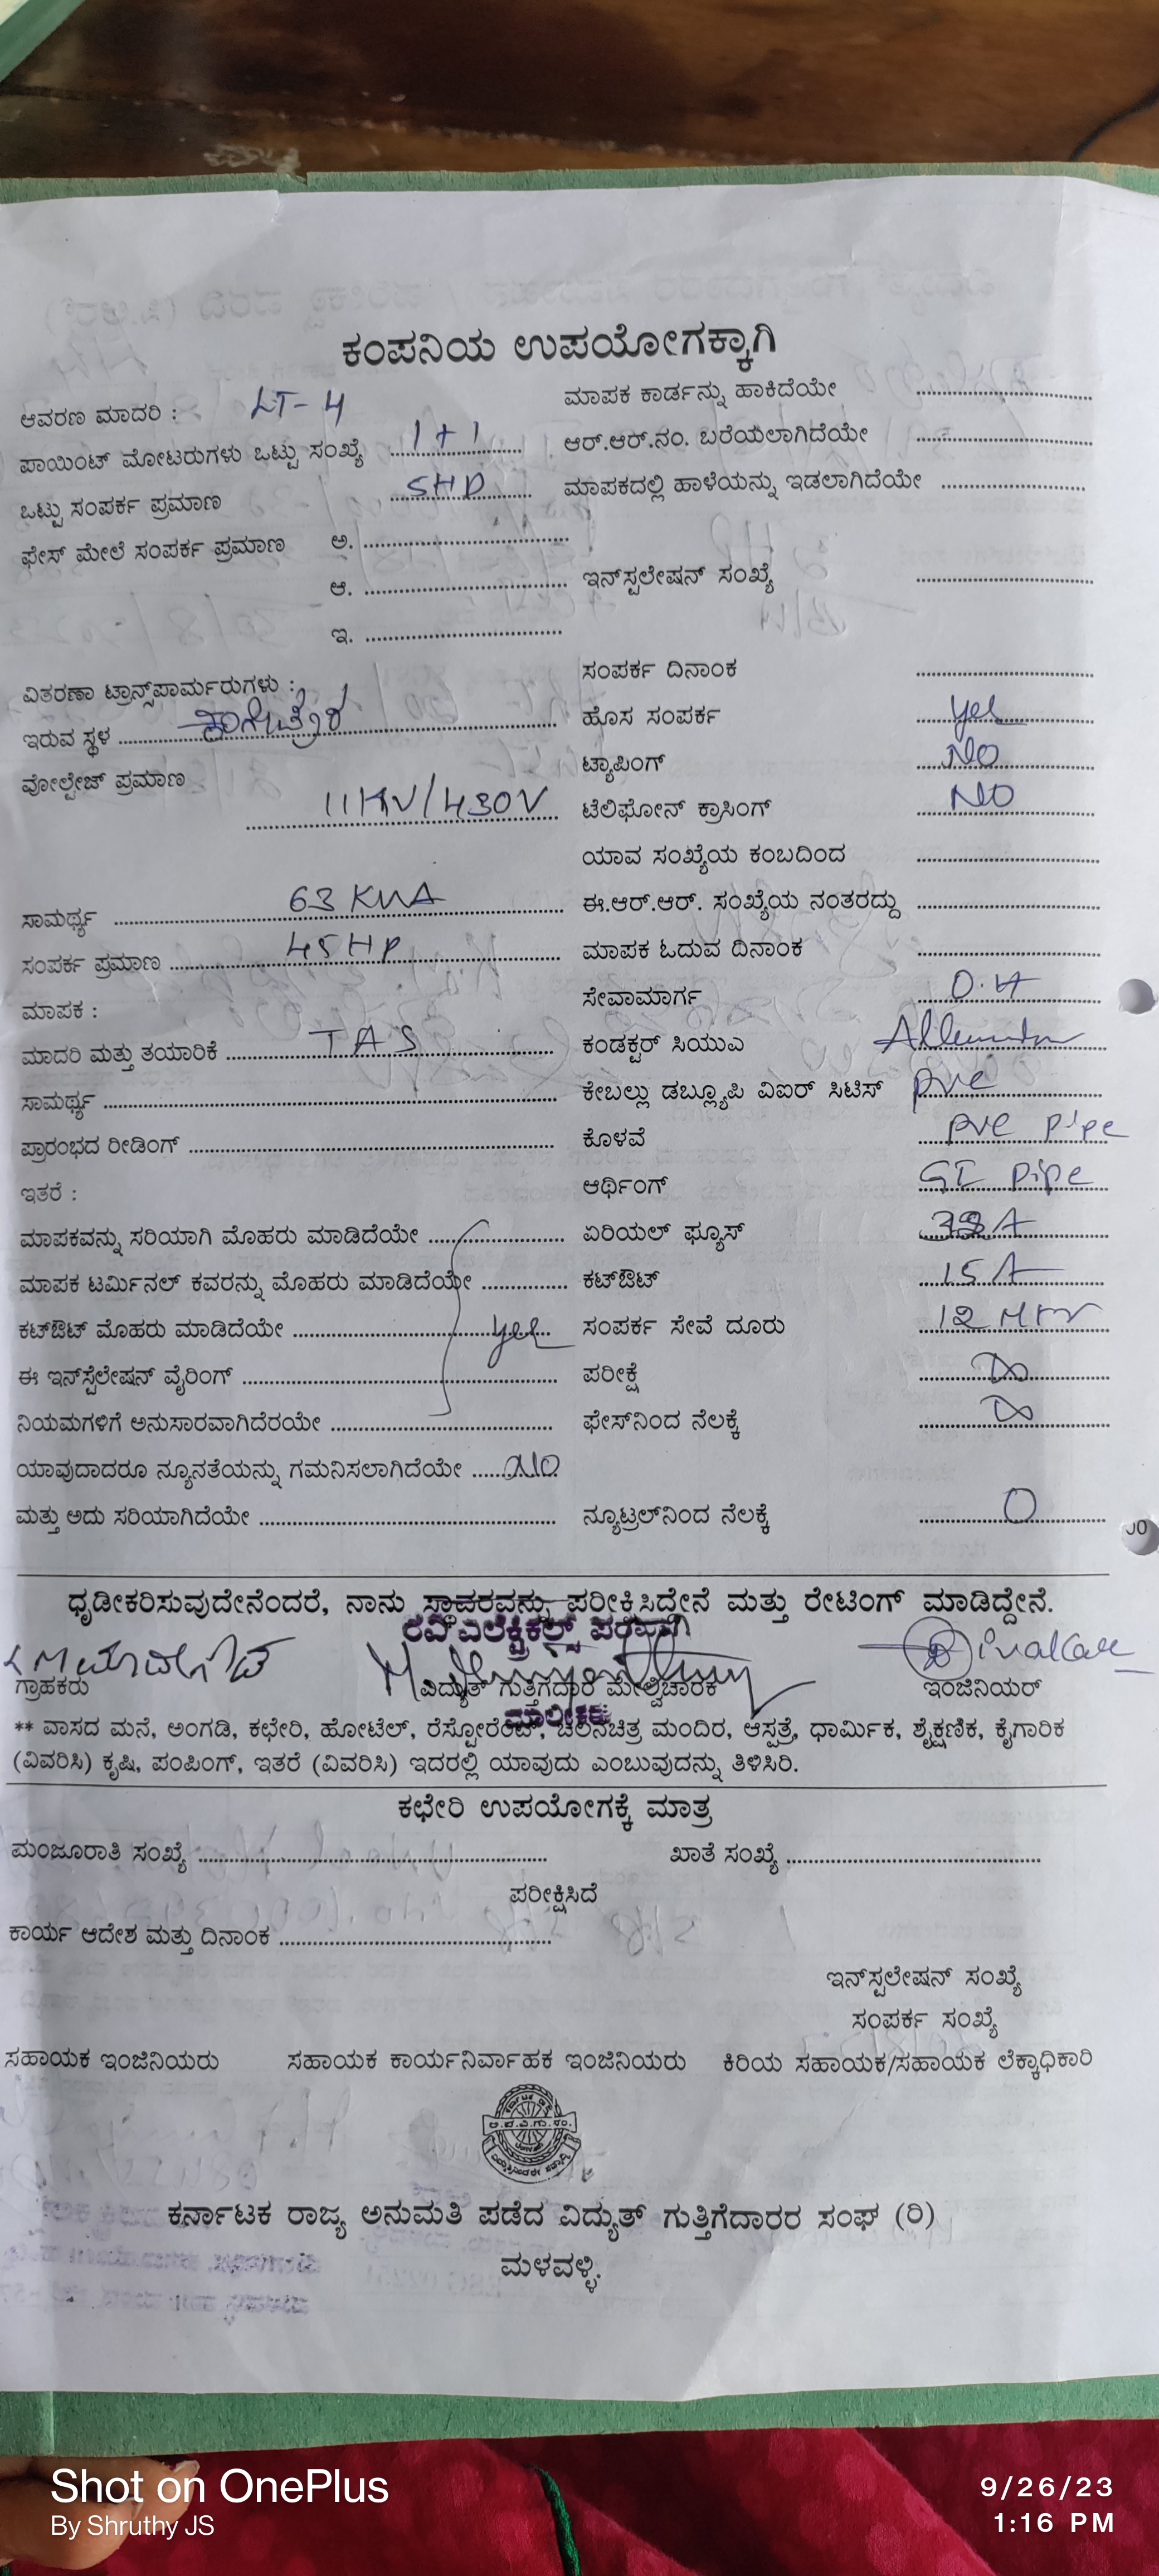 ಕಂಪನಿಯ ಉಪಯೋಗಕ್ಕಾಗಿ
ಆವರಣ ಮಾದರಿ : LT-4
ಮಾಪಕ ಕಾರ್ಡನ್ನು ಹಾಕಿದೆಯೇ
ಪಾಯಿಂಟ್ ಮೋಟರುಗಳು ಒಟ್ಟು ಸಂಖ್ಯೆ 1+1
ಆರ್.ಆರ್.ನಂ. ಬರೆಯಲಾಗಿದೆಯೇ
ಒಟ್ಟು ಸಂಪರ್ಕ ಪ್ರಮಾಣ 5HP
ಮಾಪಕದಲ್ಲಿ ಹಾಳೆಯನ್ನು ಇಡಲಾಗಿದೆಯೇ
ಫೇಸ್ ಮೇಲೆ ಸಂಪರ್ಕ ಪ್ರಮಾಣ ಅ.
ಆ.
ಇನ್‌ಸ್ಟಲೇಷನ್ ಸಂಖ್ಯೆ
ಇ.
ವಿತರಣಾ ಟ್ರಾನ್ಸ್‌ಪಾರ್ಮರುಗಳು :
ಸಂಪರ್ಕ ದಿನಾಂಕ
ಇರುವ ಸ್ಥಳ
ಹೊಸ ಸಂಪರ್ಕ yes
ವೋಲ್ಟೇಜ್ ಪ್ರಮಾಣ 11KV/430V
ಟ್ಯಾಪಿಂಗ್ NO
ಟೆಲಿಫೋನ್ ಕ್ರಾಸಿಂಗ್ NO
ಯಾವ ಸಂಖ್ಯೆಯ ಕಂಬದಿಂದ
ಸಾಮರ್ಥ್ಯ 63 KVA
ಈ.ಆರ್.ಆರ್. ಸಂಖ್ಯೆಯ ನಂತರದ್ದು
ಸಂಪರ್ಕ ಪ್ರಮಾಣ 45HP
ಮಾಪಕ ಓದುವ ದಿನಾಂಕ
ಮಾಪಕ :
ಸೇವಾಮಾರ್ಗ O.H
ಮಾದರಿ ಮತ್ತು ತಯಾರಿಕೆ TAS
ಕಂಡಕ್ಟರ್ ಸಿಯುಎ
ಸಾಮರ್ಥ್ಯ
ಕೇಬಲ್ಲು ಡಬ್ಲ್ಯೂಪಿ ವಿಐರ್ ಸಿಟಿಸ್ pvc
ಪ್ರಾರಂಭದ ರೀಡಿಂಗ್
ಕೊಳವೆ pvc pipe
ಇತರೆ :
ಆರ್ಥಿಂಗ್ GI pipe
ಮಾಪಕವನ್ನು ಸರಿಯಾಗಿ ಮೊಹರು ಮಾಡಿದೆಯೇ
ಏರಿಯಲ್ ಫ್ಯೂಸ್
ಮಾಪಕ ಟರ್ಮಿನಲ್ ಕವರನ್ನು ಮೊಹರು ಮಾಡಿದೆಯೇ
ಕಟ್‌ಔಟ್ 15A
ಕಟ್‌ಔಟ್ ಮೊಹರು ಮಾಡಿದೆಯೇ yes
ಸಂಪರ್ಕ ಸೇವೆ ದೂರು
ಈ ಇನ್‌ಸ್ಟೆಲೇಷನ್ ವೈರಿಂಗ್
ಪರೀಕ್ಷೆ ∞
ನಿಯಮಗಳಿಗೆ ಅನುಸಾರವಾಗಿದೆರಯೇ
ಫೇಸ್‌ನಿಂದ ನೆಲಕ್ಕೆ ∞
ಯಾವುದಾದರೂ ನ್ಯೂನತೆಯನ್ನು ಗಮನಿಸಲಾಗಿದೆಯೇ NO
ಮತ್ತು ಅದು ಸರಿಯಾಗಿದೆಯೇ
ನ್ಯೂಟ್ರಲ್‌ನಿಂದ ನೆಲಕ್ಕೆ 0
ಧೃಡೀಕರಿಸುವುದೇನೆಂದರೆ, ನಾನು ಸ್ಥಾವರವನ್ನು ಪರೀಕ್ಷಿಸಿದ್ದೇನೆ ಮತ್ತು ರೇಟಿಂಗ್ ಮಾಡಿದ್ದೇನೆ.
ರವಿ ಎಲೆಕ್ಟ್ರಿಕಲ್ಸ್ ಪರವಾಗಿ
ಗ್ರಾಹಕರು
ವಿದ್ಯುತ್ ಗುತ್ತಿಗೆದಾರ ಮೇಲ್ವಿಚಾರಕ
ಇಂಜಿನಿಯರ್
ಮಾಲೀಕರು
** ವಾಸದ ಮನೆ, ಅಂಗಡಿ, ಕಛೇರಿ, ಹೋಟೆಲ್, ರೆಸ್ಟೋರೆಂಟ್, ಚಲನಚಿತ್ರ ಮಂದಿರ, ಆಸ್ಪತ್ರೆ, ಧಾರ್ಮಿಕ, ಶೈಕ್ಷಣಿಕ, ಕೈಗಾರಿಕ
(ವಿವರಿಸಿ) ಕೃಷಿ, ಪಂಪಿಂಗ್, ಇತರೆ (ವಿವರಿಸಿ) ಇದರಲ್ಲಿ ಯಾವುದು ಎಂಬುವುದನ್ನು ತಿಳಿಸಿರಿ.
ಕಛೇರಿ ಉಪಯೋಗಕ್ಕೆ ಮಾತ್ರ
ಮಂಜೂರಾತಿ ಸಂಖ್ಯೆ
ಖಾತೆ ಸಂಖ್ಯೆ
ಪರೀಕ್ಷಿಸಿದೆ
ಕಾರ್ಯ ಆದೇಶ ಮತ್ತು ದಿನಾಂಕ
ಇನ್‌ಸ್ಟಲೇಷನ್ ಸಂಖ್ಯೆ
ಸಂಪರ್ಕ ಸಂಖ್ಯೆ
ಸಹಾಯಕ ಇಂಜಿನಿಯರು ಸಹಾಯಕ ಕಾರ್ಯನಿರ್ವಾಹಕ ಇಂಜಿನಿಯರು ಕಿರಿಯ ಸಹಾಯಕ/ಸಹಾಯಕ ಲೆಕ್ಕಾಧಿಕಾರಿ
ಕರ್ನಾಟಕ ರಾಜ್ಯ ಅನುಮತಿ ಪಡೆದ ವಿದ್ಯುತ್ ಗುತ್ತಿಗೆದಾರರ ಸಂಘ (ರಿ)
ಮಳವಳ್ಳಿ.
Shot on OnePlus
By Shruthy JS
9/26/23
1:16 PM